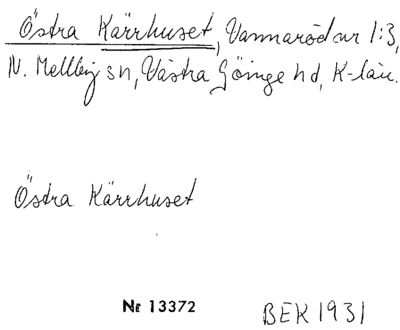 Östra Kärrhuset, Vannaröd nr 1:3,
N. Mellby sn, Västra Göinge hd, K-län.
Östra Kärrhuset
Nr 13372
BEK 1931